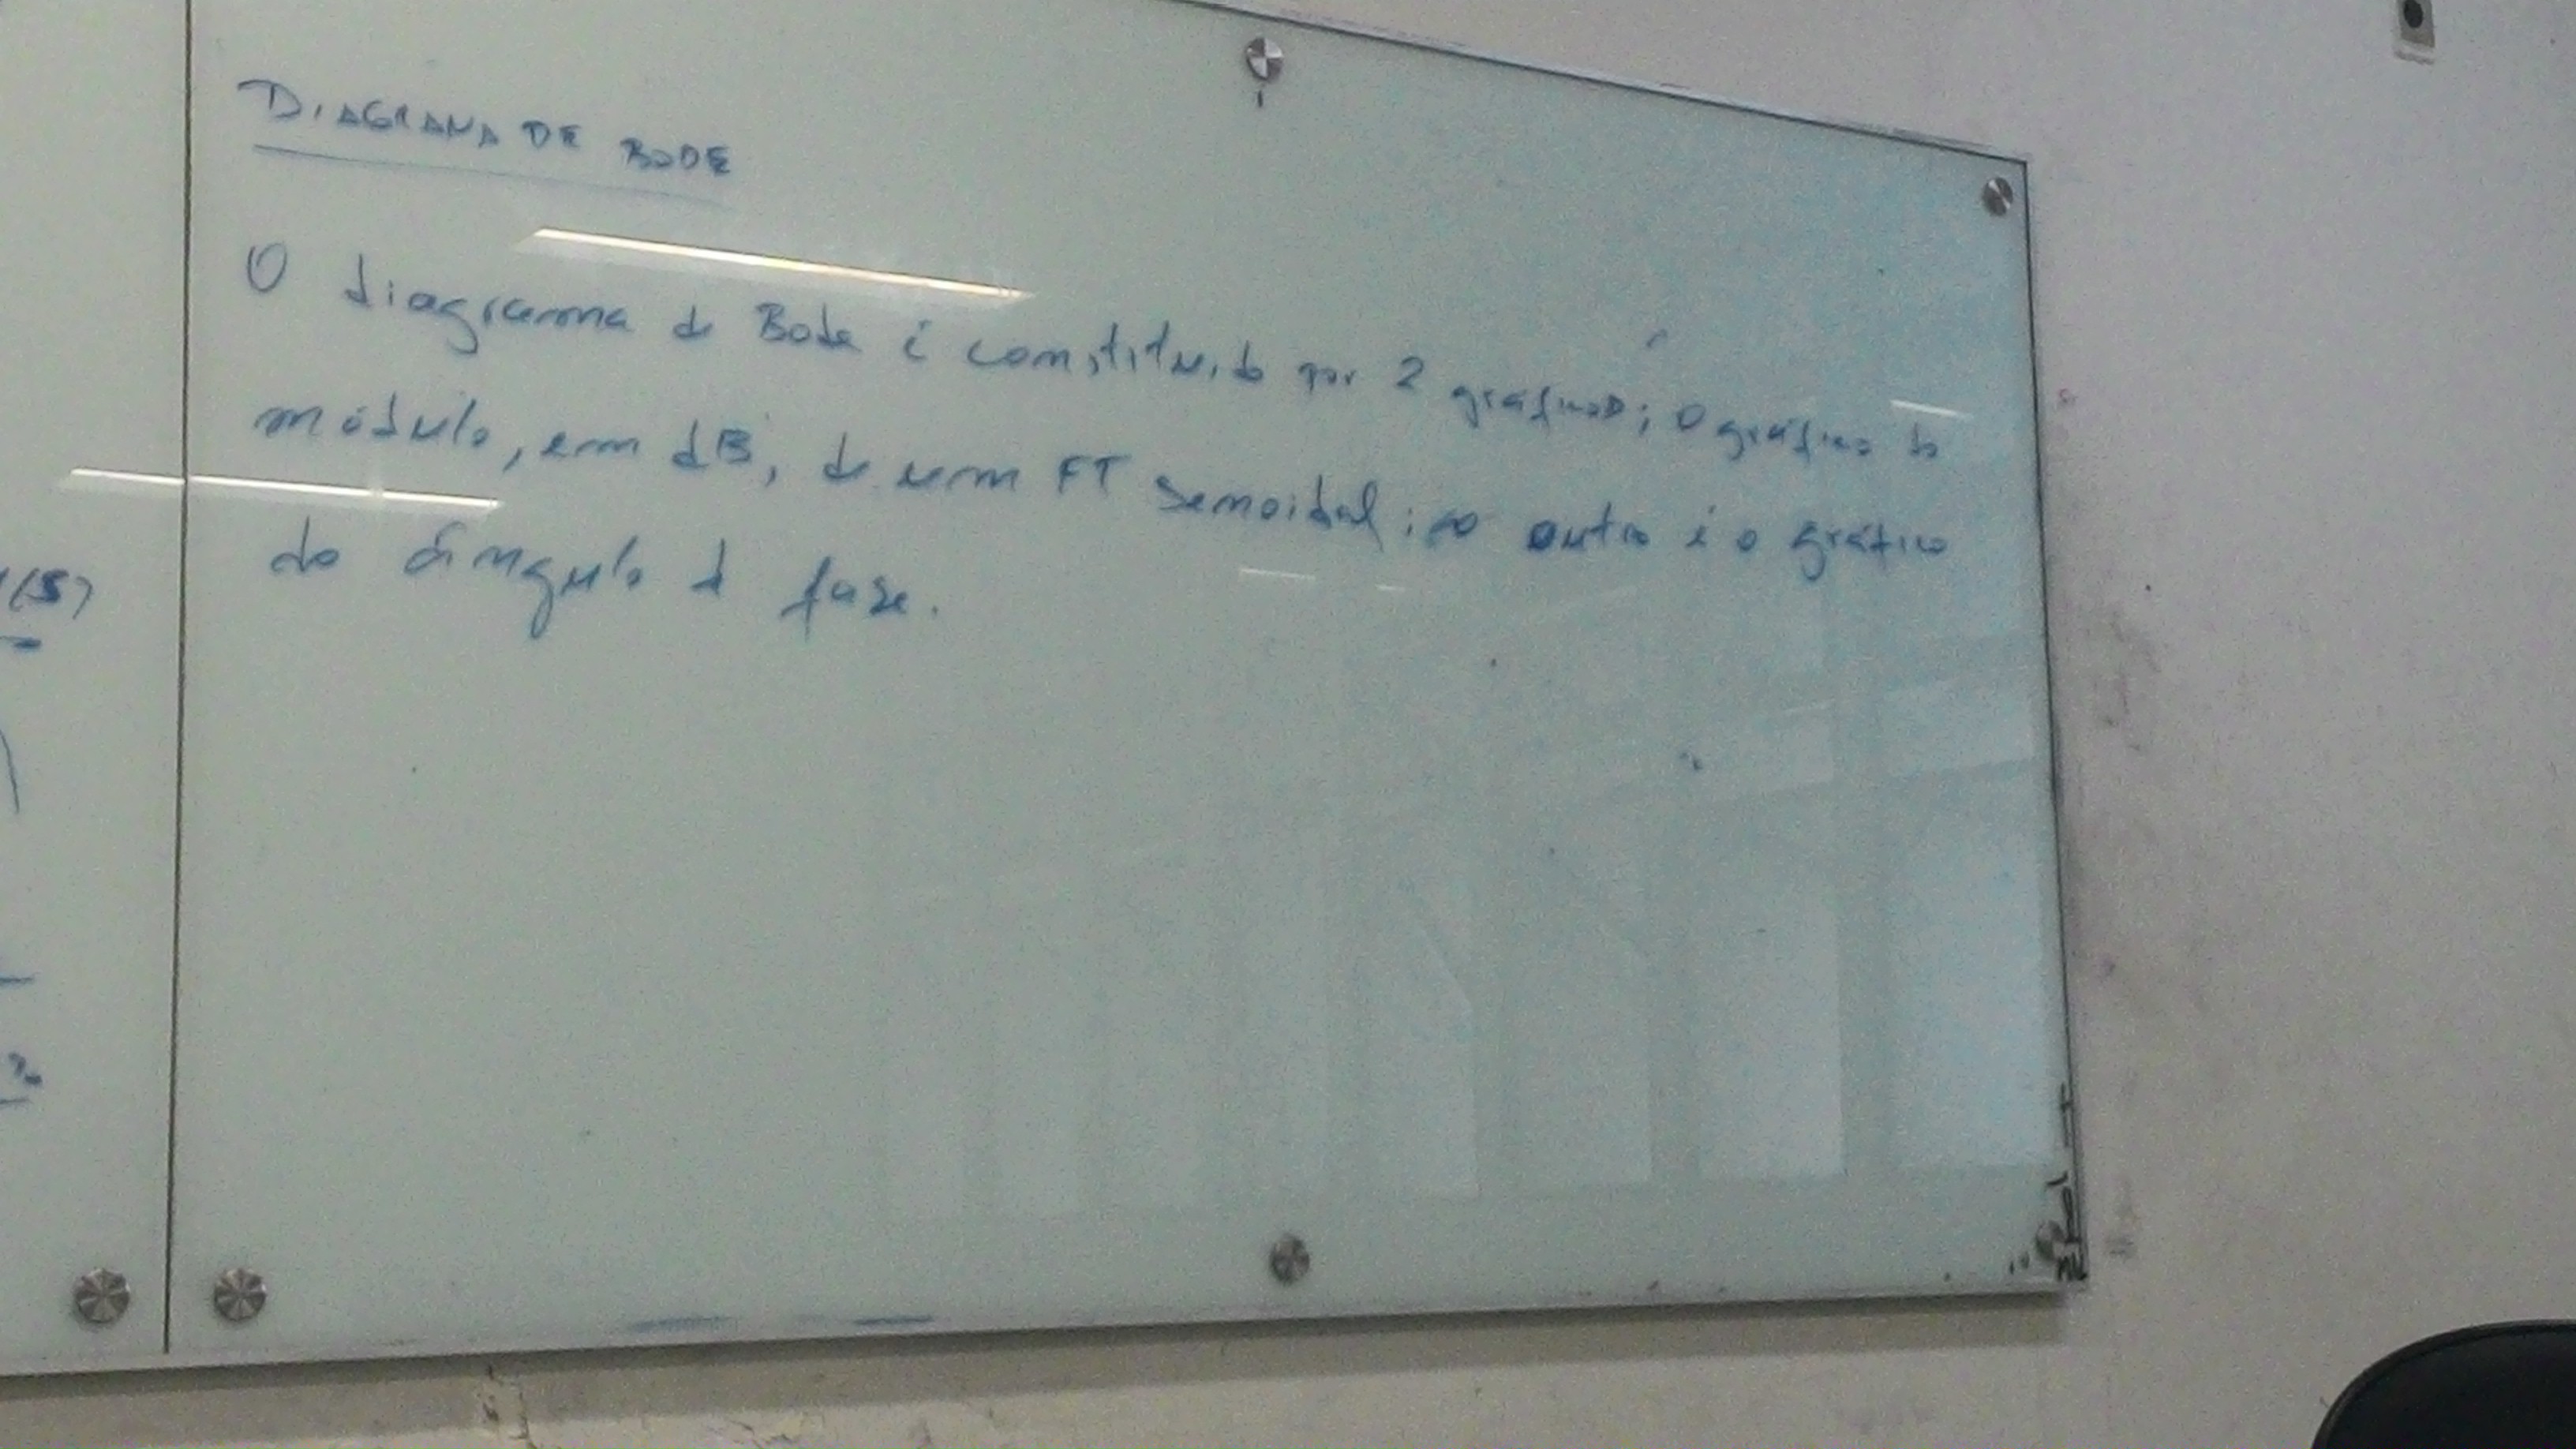 DIAGRAMA DE BODE
O diagrama de Bode é constituído por 2 gráficos; o gráfico do
módulo, em dB, de um FT senoidal; o outro é o gráfico
do ângulo de fase.
(S)